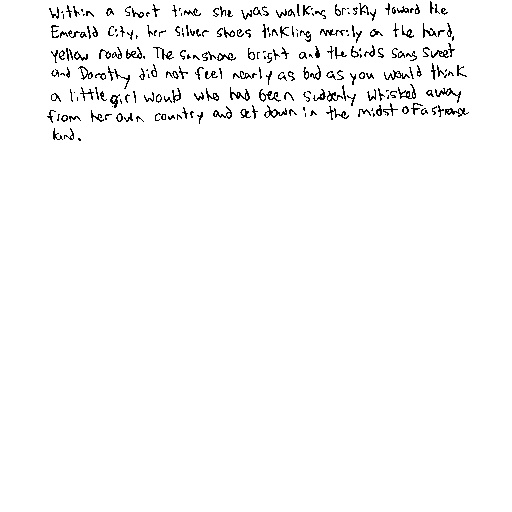 Within a short time she was walking briskly toward the
Emerald City, her Silver shoes tinkling merrily on the hard,
yellow roadbed. The sun shone bright and the birds sang sweet
and Dorothy did not feel nearly as bad as you would think
a little girl would who had been suddenly whisked away
from her own country and set down in the midst of a strange
land.